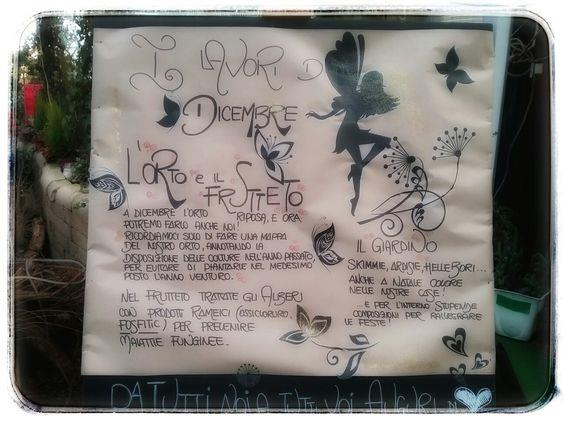 I LAVORI DI
DICEMBRE
L'ORTO E IL
FRUTTETO
A DICEMBRE L'ORTO RIPOSA, E ORA
POTREMO FARLO ANCHE NOI!
RICORDIAMOCI SOLO DI FARE UNA MAPPA
DEL NOSTRO ORTO, ANNOTANDO LA
DISPOSIZIONE DELLE COLTURE NELL'ANNO PASSATO,
PER EVITARE DI PIANTARLE NEL MEDESIMO
POSTO L'ANNO VENTURO.
NEL FRUTTETO TRATATE GLI ALBERI
CON PRODOTTI RAMEICI (OSSICLORURO,
FOSFITIC) PER PREVENIRE
MALATTIE FUNGINEE.
IL GIARDINO
SKIMMIE, ARDISIE, HELLEBORI...
ANCHE A NATALE COLORE
NELLE NOSTRE CASE!
...E PER L'INTERNO STUPENDE
COMPOSIZIONI PER RALLEGRARE
LE FESTE!
DA TUTTI NOI A TUTTI VOI AUGURI DI